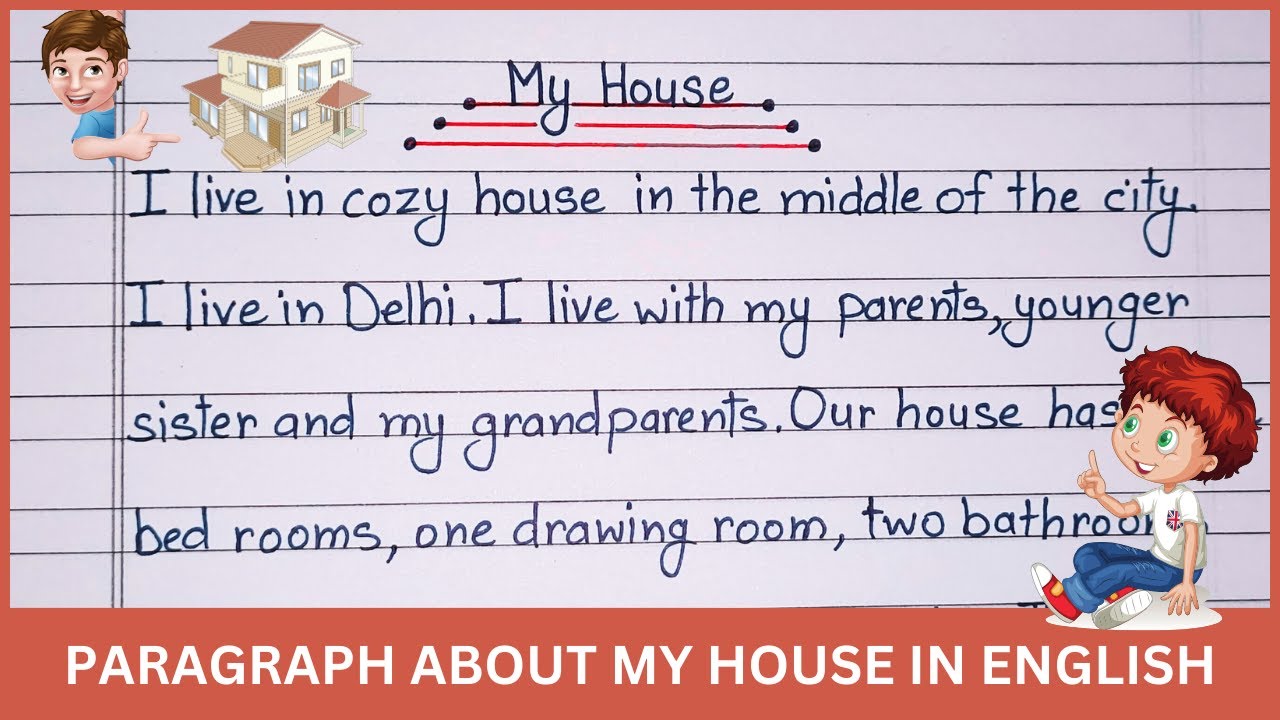 My House
I live in cozy house in the middle of the city.
I live in Delhi. I live with my parents, younger
sister and my grandparents. Our house has
bed rooms, one drawing room, two
PARAGRAPH ABOUT MY HOUSE IN ENGLISH